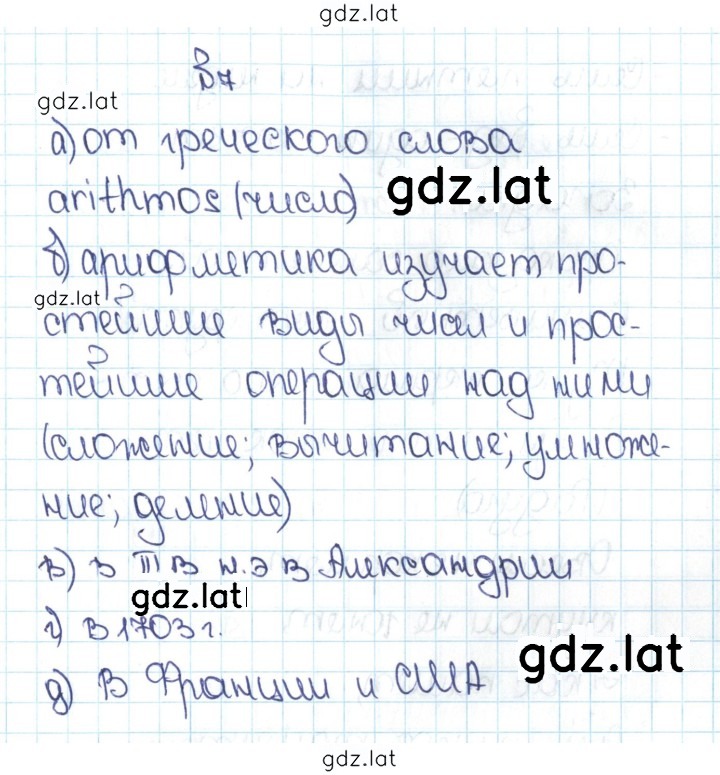 gdz.lat
В7
gdz.lat
а) от греческого слова
arithmos (число)
gdz.lat
б) арифметика изучает про-
gdz.lat
стейшие виды чисел и прос-
тейшие операции над ними
(сложение; вычитание; умноже-
ние; деление)
в) в III в н.э в Александрии
gdz.lat
г) в 1703 г.
gdz.lat
д) в Франции и США
gdz.lat